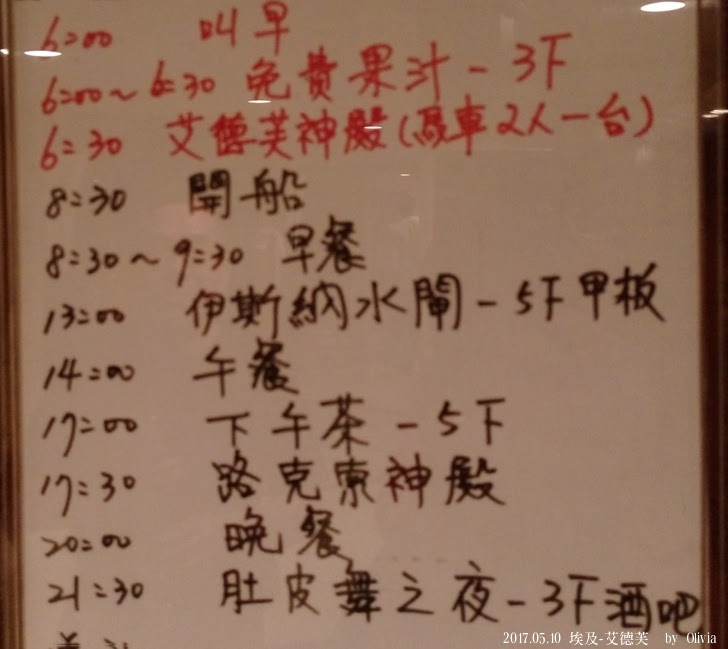 6:00 叫早
6:00~6:30 免費果汁-3F
6:30 艾德芙神殿(馬車2人一台)
8:30 開船
8:30~9:30 早餐
13:00 伊斯納水閘-5F甲板
14:00 午餐
17:00 下午茶-5F
17:30 路克索神殿
20:00 晚餐
21:30 肚皮舞之夜-3F酒吧
2017.05.10 埃及-艾德芙 by Olivia